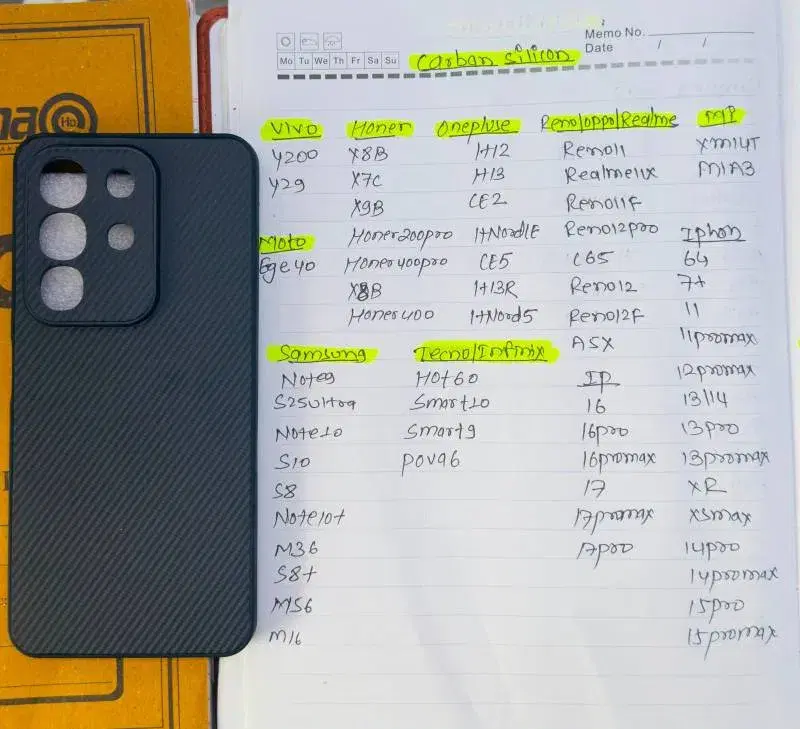 Memo No.
Date / /
Mo Tu We Th Fr Sa Su
Carban silicon
Vivo
Y200
Y29
Moto
Ege 40
Honer
X8B
X7C
X9B
Honer200pro
Honer400pro
X8B
Honer400
Onepluse
1+12
1+13
CE2
1+Nord1E
CE5
1+13R
1+Nord5
Reno/oppo/Realme
Reno11
Realme11x
Reno11F
Reno12pro
C65
Reno12
Reno12F
A5X
MI
XM14T
M1A3
Iphon
64
7+
11
11promax
12promax
13/14
13pro
13promax
XR
XSmax
14pro
14promax
15pro
15promax
Samsung
Note9
S25Ultra
Note10
S10
S8
Note10+
M36
S8+
M56
M16
Tecno/Infinix
Hot60
Smart10
Smart9
Pova6
IP
16
16pro
16promax
17
17promax
17pro